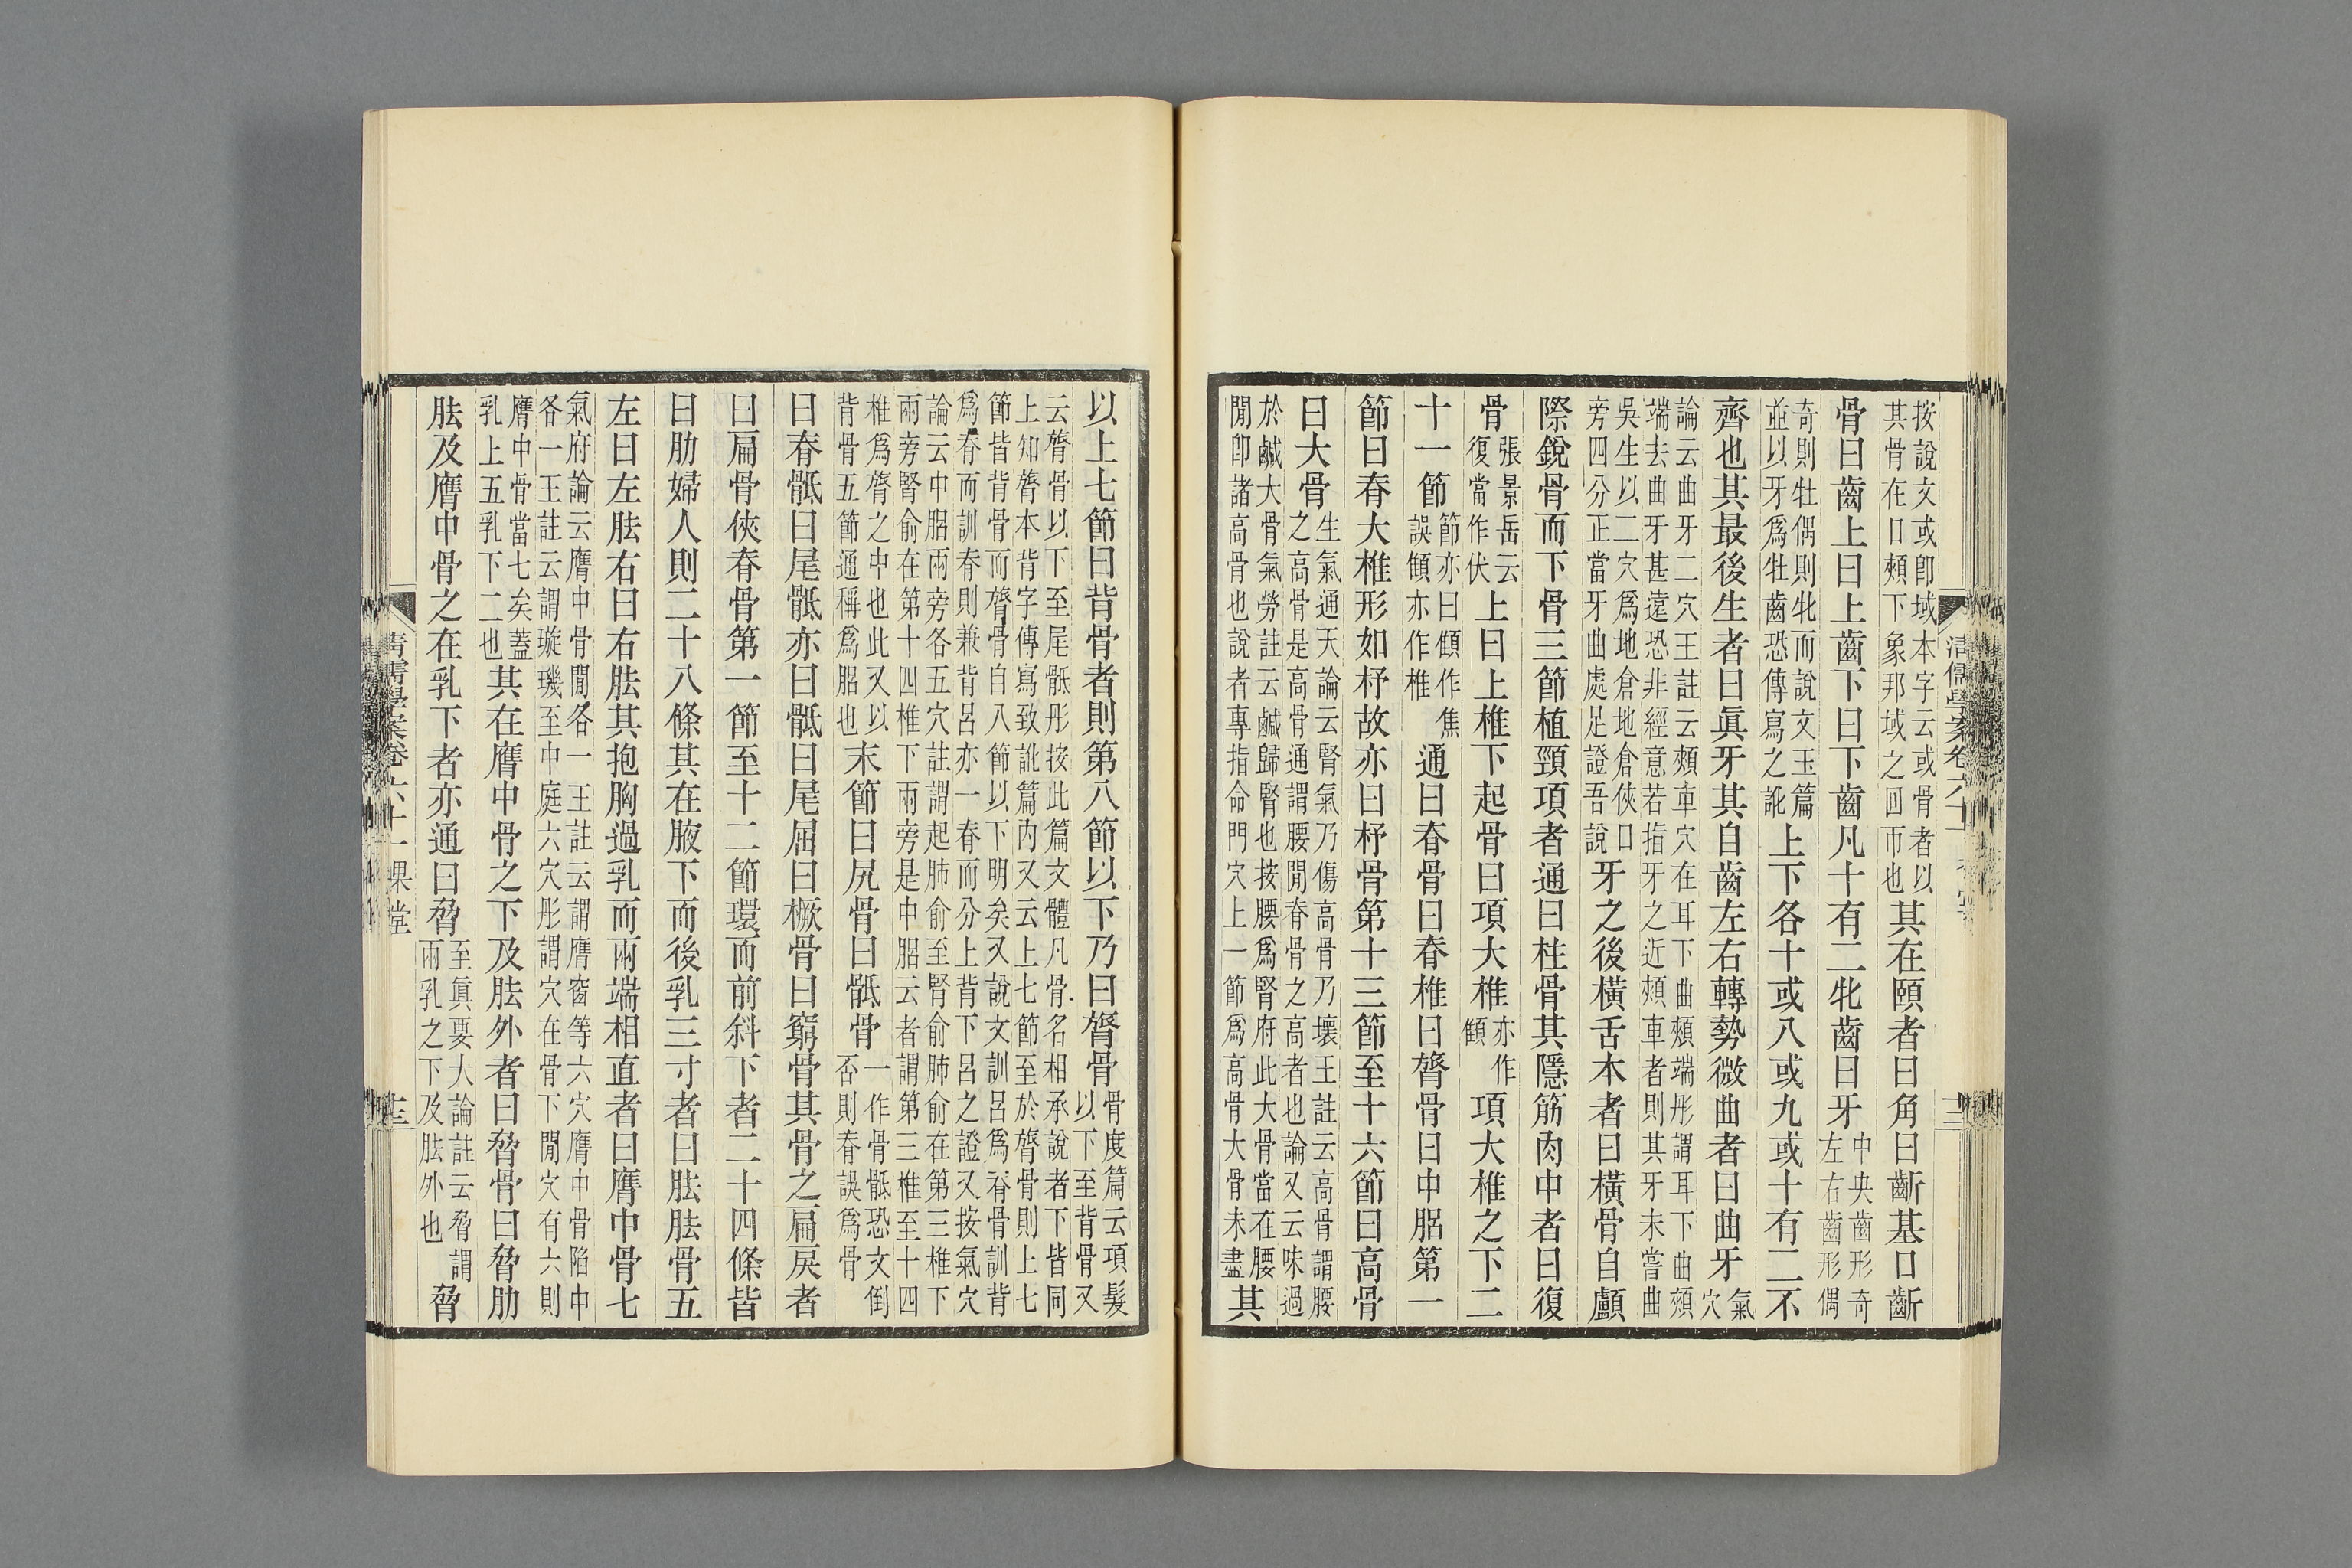 按說文或卽域本字云或骨者以其骨在口頰下象邦域之回帀也其在頤者曰角曰齗基口齗
骨曰齒上曰上齒下曰下齒凡十有二牝齒曰牙中央齒形奇左右齒形偶
奇則牡偶則牝而說文玉篇並以牙爲牡齒恐傳寫之訛上下各十或八或九或十有二不
齊也其最後生者曰眞牙其自齒左右轉勢微曲者曰曲牙氣穴
論云曲牙二穴王註云頰車穴在耳下曲頰端彤謂耳下曲頰端去曲牙甚遠恐非經意若指牙之近頰車者則其牙未嘗曲
吳生以二穴爲地倉地倉俠口旁四分正當牙曲處足證吾說牙之後橫舌本者曰橫骨自顱
際銳骨而下骨三節植頸項者通曰柱骨其隱筋肉中者曰復
骨張景岳云復當作伏上曰上椎下起骨曰項大椎亦作顀項大椎之下二
十一節節亦曰顀作焦誤顀亦作椎通曰脊骨曰脊椎曰膂骨曰中𦛗第一
節曰脊大椎形如杼故亦曰杼骨第十三節至十六節曰高骨
曰大骨生氣通天論云腎氣乃傷高骨乃壞王註云高骨謂腰之高骨是高骨通謂腰閒脊骨之高者也論又云味過
於鹹大骨氣勞註云鹹歸腎也按腰爲腎府此大骨當在腰閒卽諸高骨也說者專指命門穴上一節爲高骨大骨未盡其
以上七節曰背骨者則第八節以下乃曰膂骨骨度篇云項髮以下至背骨又
云膂骨以下至尾骶彤按此篇文體凡骨名相承說者下皆同上知膂本背字傳寫致訛篇內又云上七節至於膂骨則上七
節皆背骨而膂骨自八節以下明矣又說文訓呂爲脊骨訓背爲脊而訓脊則兼背呂亦一脊而分上背下呂之證又按氣穴
論云中𦛗兩旁各五穴註謂起肺俞至腎俞肺俞在第三椎下兩旁腎俞在第十四椎下兩旁是中𦛗云者謂第三椎至十四
椎爲膂之中也此又以背骨五節通稱爲𦛗也末節曰尻骨曰骶骨一作骨骶恐文倒否則脊誤爲骨
曰脊骶曰尾骶亦曰骶曰尾屈曰橛骨曰窮骨其骨之扁戾者
曰扁骨俠脊骨第一節至十二節環而前斜下者二十四條皆
曰肋婦人則二十八條其在腋下而後乳三寸者曰胠胠骨五
左曰左胠右曰右胠其抱胸過乳而兩端相直者曰膺中骨七
氣府論云膺中骨閒各一王註云謂膺窗等六穴膺中骨陷中各一王註云謂璇璣至中庭六穴彤謂穴在骨下閒穴有六則
膺中骨當七矣蓋乳上五乳下二也其在膺中骨之下及胠外者曰脅骨曰脅肋
胠及膺中骨之在乳下者亦通曰脅至眞要大論註云脅謂兩乳之下及胠外也脅
清儒學案卷六十一果堂